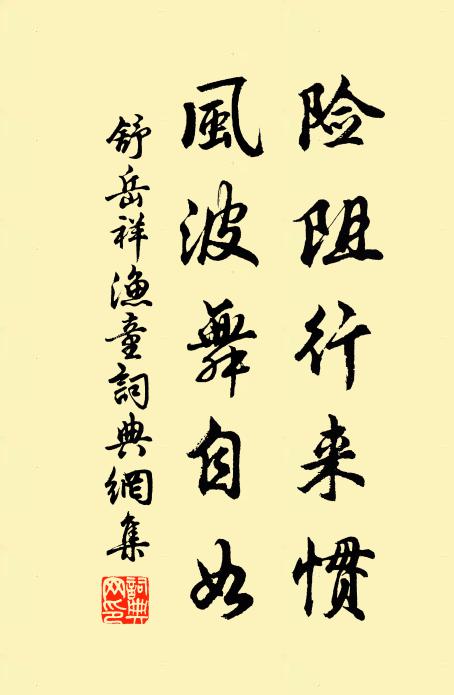 险阻行来惯
風波舞自如
舒岳祥漁童詞典網集
詞典网印